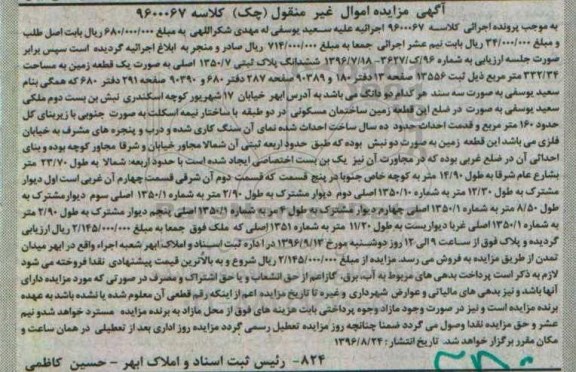 آگهی مزایده اموال غیر منقول (چک) کلاسه ۹۶۰۰۰۶۷
به موجب پرونده اجرائی کلاسه ۹۶۰۰۰۶۷ اجرائیه علیه سعید یوسفی له مهدی شکراللهی به مبلغ ۶۸۰/۰۰۰/۰۰۰ ریال بابت اصل طلب
و مبلغ ۳۴/۰۰۰/۰۰۰ ریال بابت نیم عشر اجرائی جمعا به مبلغ ۷۱۴/۰۰۰/۰۰۰ ریال صادر و منجر به ابلاغ اجرائیه گردیده است سپس برابر
صورت جلسه ارزیابی به شماره ۹۶/ک/۳۶۲۷- ۱۳۹۶/۷/۱۸ ششدانگ پلاک ثبتی ۱۳۵۰/۷ اصلی به صورت یک قطعه زمین به مساحت
۳۳۲/۳۴ متر مربع ذیل ثبت ۱۳۵۵۶ صفحه ۱۳ دفتر ۱۸۰ و ۹۰۳۸۹ صفحه ۲۸۷ دفتر ۶۸۰ و ۹۰۳۹۰ صفحه ۲۹۱ دفتر ۶۸۰ که همگی بنام
سعید یوسفی به صورت سه سند هر کدام دو دانگ می باشد به آدرس ابهر خیابان ۱۷ شهریور کوچه اسکندری نبش بن بست دوم ملکی
سعید یوسفی به صورت در ضلع این قطعه زمین ساختمان مسکونی در دو طبقه با ساختار نیمه اسکلت به صورت جنوبی با زیربنای کل
حدود ۱۶۰ متر مربع و قدمت احداث حدود ده سال ساخت احداث شده نمای آن سنگ کاری شده و درب و پنجره های مشرف به خیابان
فلزی می باشد این قطعه زمین به صورت دو نبش بوده که طبق حدود اربعه ثبتی آن شمالا مجاور خیابان و شرقا مجاور کوچه بوده و بنای
احداثی آن در ضلع غربی بوده که در مجاورت آن نیز یک بن بست اختصاصی ایجاد شده است با حدود اربعه: شمالا به طول ۲۳/۷۰ متر
بشارع عام شرقا به طول ۱۴/۹۰ متر به کوچه خاص جنوبا در پنج قسمت که قسمت دوم آن شرقی قسمت چهارم آن غربی است اول دیوار
مشترک به طول ۱۲/۳۰ متر به شماره ۱۳۵۰/۱ اصلی دوم دیوار مشترک به طول ۲/۹۰ متر به شماره ۱۳۵۰/۱ اصلی سوم دیوارمشترک به
طول ۸/۵۰ متر به شماره ۱۳۵۰/۱ اصلی چهارم دیوار مشترک به طول ۴ متر به شماره ۱۳۵۰/۱ اصلی پنجم دیوار مشترک به طول ۲/۹۰ متر
به شماره ۱۳۵۰/۱ اصلی غربا دیواریست به طول ۱۱/۲۰ متر به شماره ۱۳۵۱ اصلی که ملک فوق جمعا به مبلغ ۲/۱۴۵/۰۰۰/۰۰۰ ریال ارزیابی
گردیده و پلاک فوق از ساعت ۹ الی ۱۲ روز دوشنبه مورخ ۱۳۹۶/۹/۱۳ در اداره ثبت اسناد و املاک ابهر شعبه اجراء واقع در ابهر میدان
تمدن از طریق مزایده به فروش می رسد. مزایده از مبلغ ۲/۱۴۵/۰۰۰/۰۰۰ ریال شروع و به بالاترین قیمت پیشنهادی نقدا فروخته می شود
لازم به ذکر است پرداخت بدهی های مربوط به آب، برق، گاز اعم از حق انشعاب و یا حق اشتراک و مصرف در صورتی که مورد مزایده دارای
آنها باشد و نیز بدهی های مالیاتی و عوارض شهرداری و غیره تا تاریخ مزایده اعم از اینکه رقم قطعی آن معلوم شده یا نشده باشد به عهده
برنده مزایده است و نیز در صورت وجود مازاد وجوه پرداختی بابت هزینه های فوق از محل مازاد به برنده مزایده مسترد خواهد شد و نیم
عشر و حق مزایده نقدا وصول می گردد ضمنا چنانچه روز مزایده تعطیل رسمی گردد مزایده روز اداری بعد از تعطیلی در همان ساعت و
مکان مقرر برگزار خواهد شد. تاریخ انتشار: ۱۳۹۶/۸/۲۴
۸۲۴- رئیس ثبت اسناد و املاک ابهر - حسین کاظمی